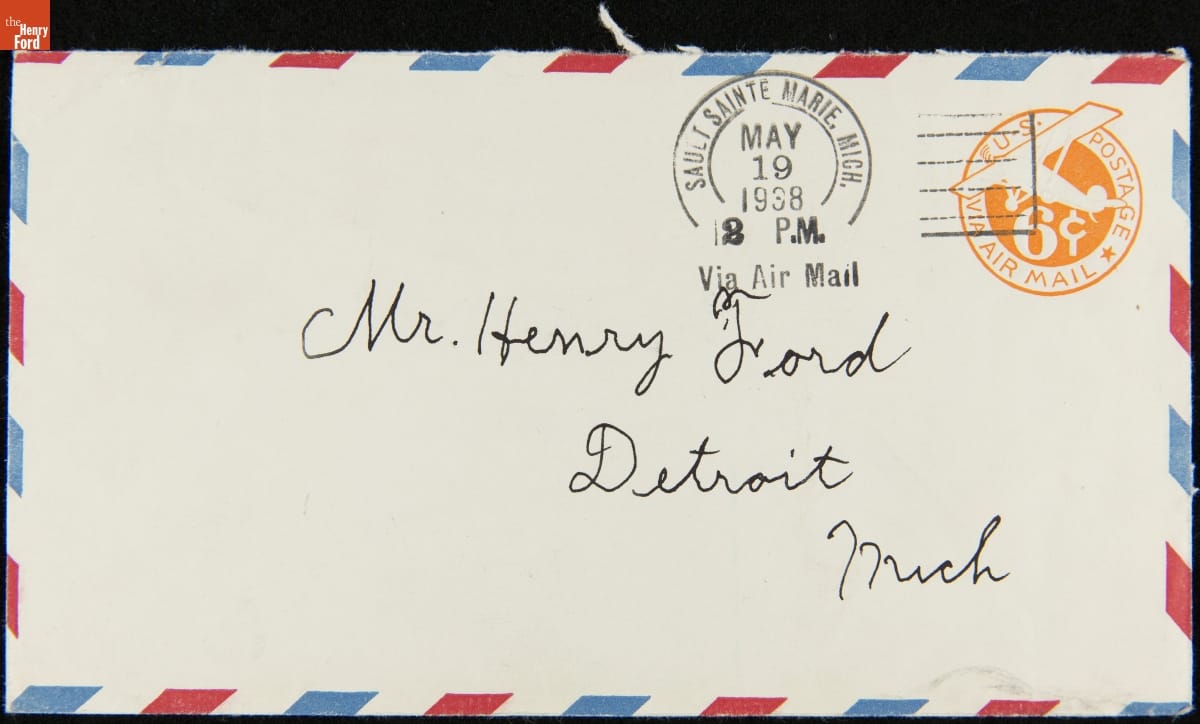 the
Henry
Ford
SAULT SAINTE MARIE, MICH.
MAY
19
1938
P.M.
Via Air Mail
U.S. POSTAGE
6¢
VIA AIR MAIL
Mr. Henry Ford
Detroit
Mich